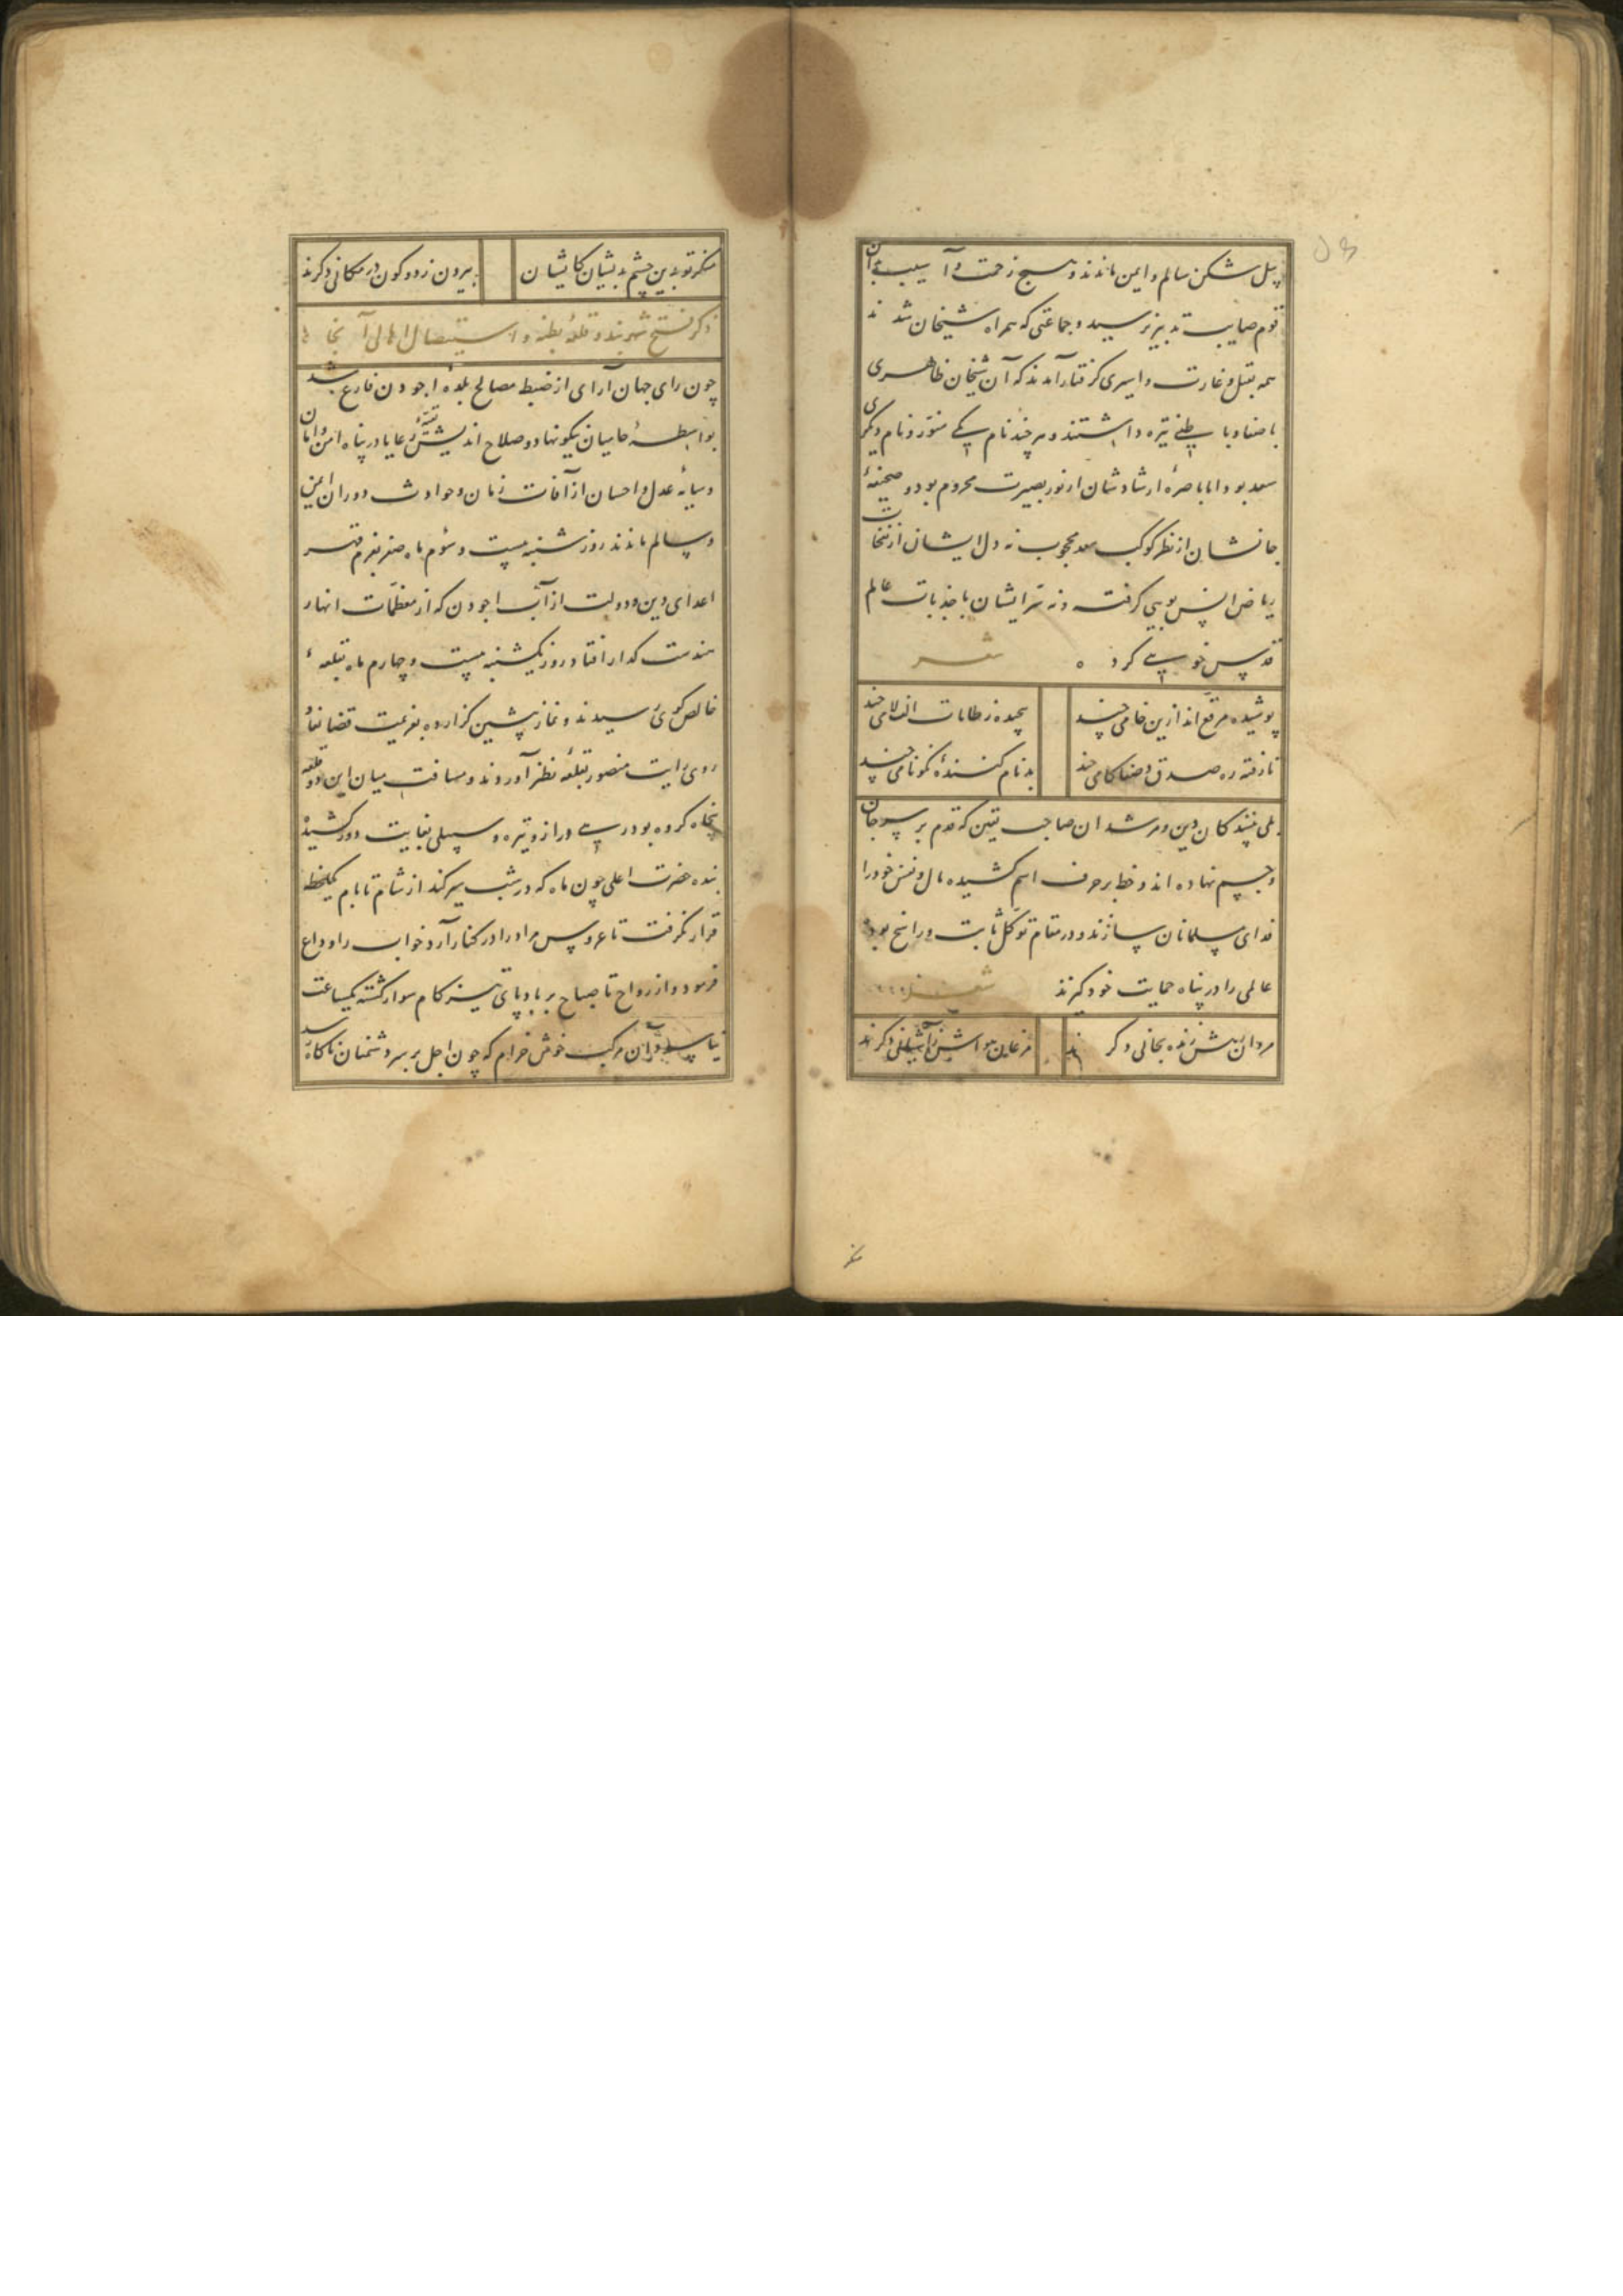 پیل شکن سالم و ایمن ماندند و هیچ زحمت و آسیب بدان
قوم صایب تدبیر نرسید و جماعتی که همراه شیخان شدند
همه بقتل و غارت و اسیری گرفتار آمدند که آن شیخان ظاهری
باصفا و باطنی تیره داشتند و هر چند نام یکی منور و نام دیگری
سعد بود اما باصرهٔ ارشادشان از نور بصیرت محروم بود و صحیفهٔ
جانشان از نظر کوکب سعد محجوب نه دل ایشان از نفحات
ریاض انس بویی گرفت و نه سر ایشان با جذبات عالم
قدس خویی کرد ه شعر
پوشیده مرقع اند ازین خامی چند
پیچیده ز طامات الف لامی چند
نارفته ره صدق و صفا گامی چند
بدنام کنندهٔ نکونامی چند
بلی پیشندگان دین و مرشدان صاحب یقین که قدم بر سر جان
و جسم نهاده اند و خط بر حرف اسم کشیده مال و نفس خود را
فدای مسلمانان سازند و در مقام توکل ثابت و راسخ بوده
عالمی را در پناه حمایت خود گیرند شعر
مردان رهش زنده بجانی دگرند
مرغان هواش ز آشیانی دگرند
منکر
منگر تو بدین چشم بدیشان کایشان
بیرون ز دو کون در مکانی دگرند
ذکر فتح شهربند و قلعهٔ بطنه و استیصال اهالی آنجا
چون رای جهان آرای از ضبط مصالح بلدهٔ اجودن فارغ شد
بواسطهٔ حامیان نیکونهاد و صلاح اندیش بقیهٔ رعایا در پناه امن و امان
و سایهٔ عدل و احسان از آفات زمان و حوادث دوران ایمن
و سالم ماندند روز شنبه بیست و سوم ماه صفر بعزم قهر
اعدای دین و دولت از آب اجودن که از معظمات انهار
هندست گذار افتاد روز یکشنبه بیست و چهارم ماه بقلعهٔ
خالص کوی رسیدند و نماز پیشین گزارده بعزیمت قضا نفاذ
روی رایت منصور بقلعه نظر آوردند و مسافت میان این دو قلعه
پنجاه کروه بود در شبی دراز و تیره و سبیلی بغایت دور کشیده
بنده حضرت اعلی چون ماه که در شب سیر کند از شام تا بام یکلحظه
قرار نگرفت تا عروس مراد را در کنار آرد خواب را وداع
فرمود و از رواح تا صباح بر بادپای تیزگام سوار گشته یکساعت
نیاسود و آن مرکب خوش خرام که چون اجل بر سر دشمنان ناگاه رسد